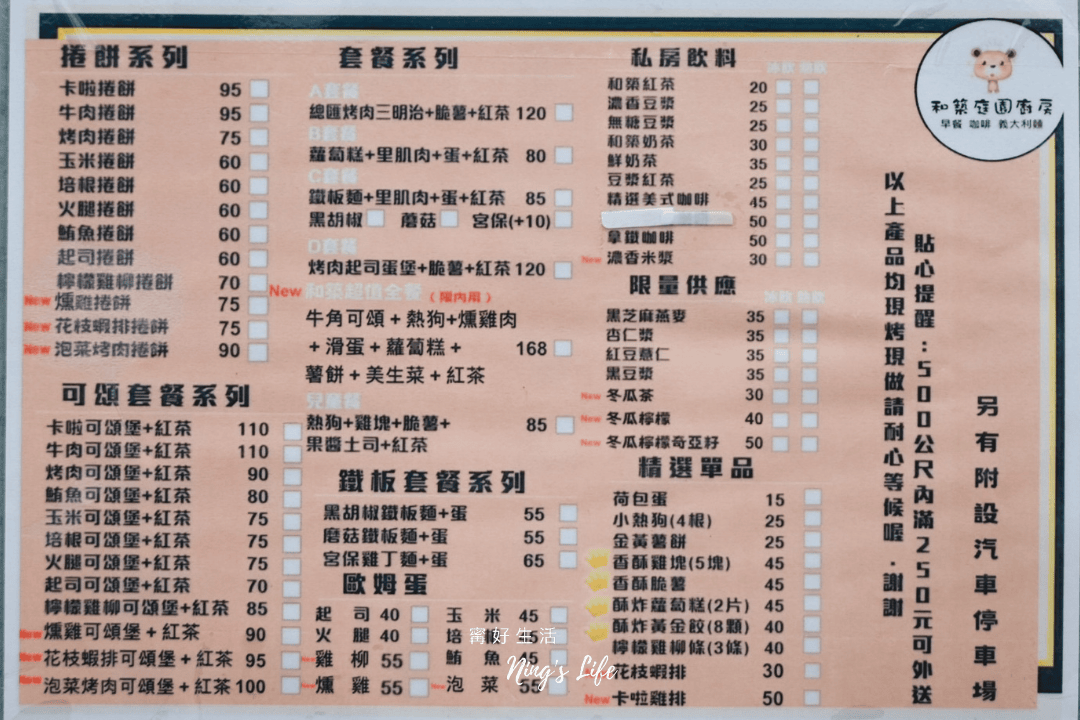 捲餅系列
卡啦捲餅 95
牛肉捲餅 95
烤肉捲餅 75
玉米捲餅 60
培根捲餅 60
火腿捲餅 60
鮪魚捲餅 60
起司捲餅 60
檸檬雞柳捲餅 70
New 燻雞捲餅 75
New 花枝蝦排捲餅 75
New 泡菜烤肉捲餅 90
可頌套餐系列
卡啦可頌堡+紅茶 110
牛肉可頌堡+紅茶 110
烤肉可頌堡+紅茶 90
鮪魚可頌堡+紅茶 80
玉米可頌堡+紅茶 75
培根可頌堡+紅茶 75
火腿可頌堡+紅茶 75
起司可頌堡+紅茶 70
檸檬雞柳可頌堡+紅茶 85
New 燻雞可頌堡+紅茶 90
New 花枝蝦排可頌堡+紅茶 95
New 泡菜烤肉可頌堡+紅茶 100
套餐系列
A套餐
總匯烤肉三明治+脆薯+紅茶 120
B套餐
蘿蔔糕+里肌肉+蛋+紅茶 80
C套餐
鐵板麵+里肌肉+蛋+紅茶 85
黑胡椒 蘑菇 宮保(+10)
D套餐
烤肉起司蛋堡+脆薯+紅茶 120
New 和築超值全餐 (限內用)
牛角可頌+熱狗+燻雞肉
+滑蛋+蘿蔔糕+ 168
薯餅+美生菜+紅茶
兒童餐
熱狗+雞塊+脆薯+ 85
果醬土司+紅茶
鐵板套餐系列
黑胡椒鐵板麵+蛋 55
蘑菇鐵板麵+蛋 55
宮保雞丁麵+蛋 65
歐姆蛋
起司 40 玉米 45
火腿 40 培
雞柳 55 鮪魚 45
燻雞 55 泡菜 55
私房飲料
冰飲 熱飲
和築紅茶 20
濃香豆漿 25
無糖豆漿 25
和築奶茶 30
鮮奶茶 35
豆漿紅茶 25
精選美式咖啡 45
50
拿鐵咖啡 50
New 濃香米漿 30
限量供應
冰飲 熱飲
黑芝麻燕麥 35
杏仁漿 35
紅豆薏仁 35
黑豆漿 35
New 冬瓜茶 30
New 冬瓜檸檬 40
New 冬瓜檸檬奇亞籽 50
精選單品
荷包蛋 15
小熱狗(4根) 25
金黃薯餅 25
香酥雞塊(5塊) 45
香酥脆薯 45
酥炸蘿蔔糕(2片) 45
酥炸黃金餃(8顆) 40
檸檬雞柳條(3條) 40
花枝蝦排 30
New 卡啦雞排 50
和築庭園廚房
早餐 咖啡 義大利麵
以上產品均現烤現做請耐心等候喔.謝謝
貼心提醒:500公尺內滿250元可外送
另有附設汽車停車場
甯好生活
Ning's Life